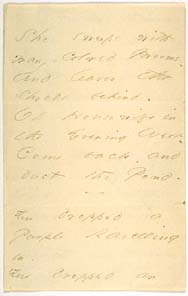 She sweeps with
many-colored Brooms
And leaves the
Shreds behind
Oh Housewife in
the Evening West
Come back, and
dust the Pond -
You dropped a
Purple Ravelling
in
You dropped an